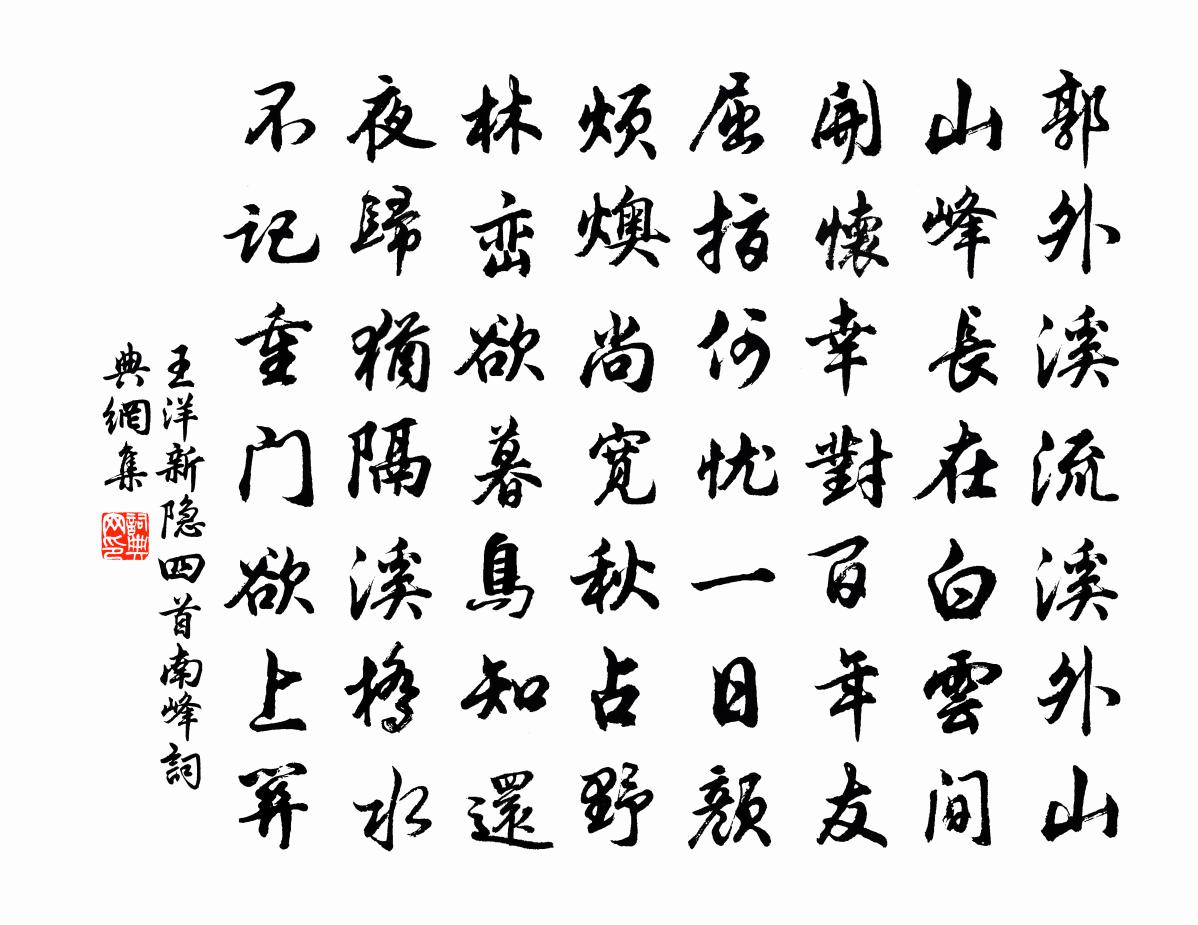 郭外溪流溪外山
山峰長在白雲間
開懷幸對百年友
屈指何憂一日顔
煩燠尚寬秋占野
林巒欲暮鳥知還
夜歸猶隔溪橋水
不記重门欲上関
王洋新隐四首南峰詞
典網集
詞典
网印